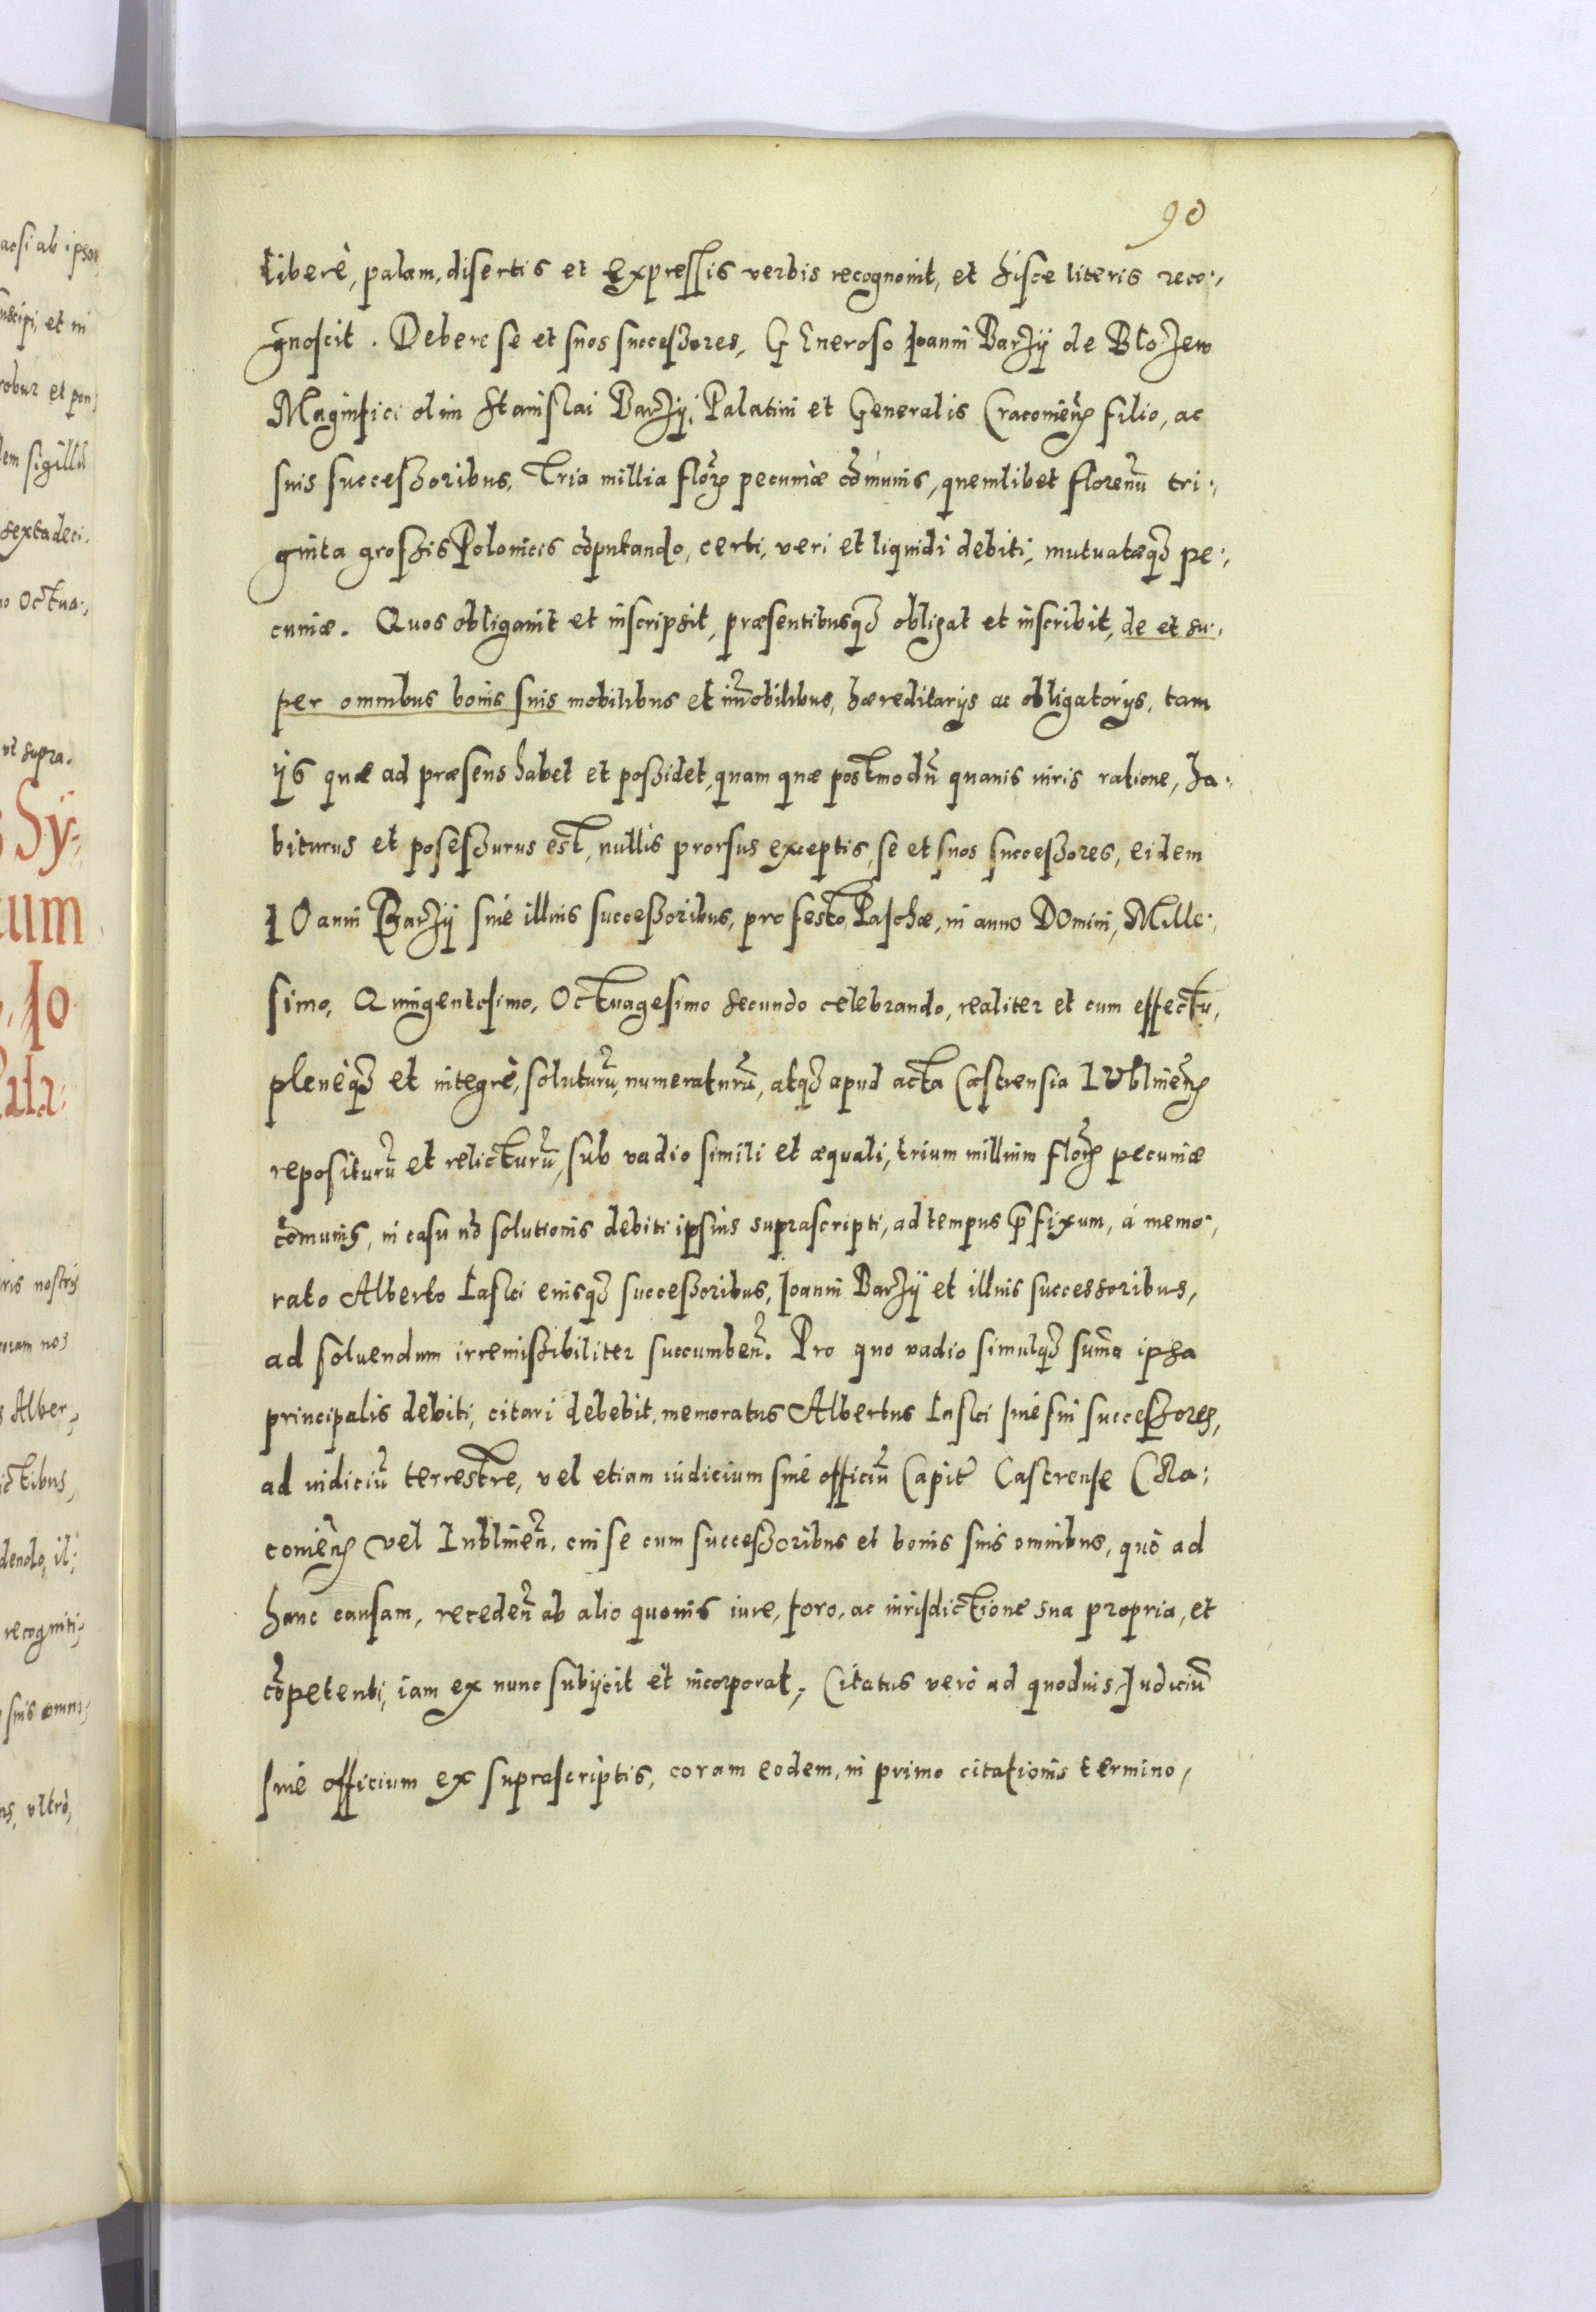 90
liberè, palam, disertis et expressis verbis recognouit, et hisce literis reco:,
gnoscit. Debere se et suos successores, GEneroso Ioanni Barzÿ de Blozew
Magnifici olim Stanislai Barzÿ, Palatini et Generalis Cracouieñ filio, ac
suis successoribus, Tria millia floř pecuniæ cõmunis, quemlibet florenũ tri:,
ginta grossis Polonicis cõputando, certi, veri et liquidi debiti, mutuatæq₃ pe:,
cuniæ. Quos obligauit et inscripsit, præsentibusq₃ obligat et inscribit, de et su:,
per omnibus bonis suis mobilibus et im̃obilibus, hæreditarÿs ac obligatorÿs, tam
ÿs quæ ad præsens habet et possidet, quam quæ postmodũ quauis iuris ratione, ha:
biturus et posessurus est, nullis prorsus exceptis, se et suos successores, eidem
IOanni Barzÿ siue illius successoribus, pro festo Paschæ, in anno DOmini, Mille:,
simo, Quingentesimo, Octuagesimo secundo celebrando, realiter et cum effectu,
plenèq₃ et integrè, soluturũ, numeraturũ, atq₃ apud acta Castrensia LUblineñ
repositurũ et relicturũ, sub vadio simili et æquali, trium millium floř pecuniæ
cõmunis, in casu nõ solutionis debiti ipsius suprascripti, ad tempus p̃fixum, á memo:,
rato Alberto Lasci eiusq₃ successoribus, Ioanni Barzÿ et illius successoribus,
ad soluendum irremissibiliter succumbeñ. Pro quo vadio simulq₃ sum̃a ipsa
principalis debiti, citari debebit, memoratus Albertus Lasci siue sui successores,
ad iudiciũ terrestre, vel etiam iudicium siue officiũ Capit̃ Castrense CRa:
couieñ vel Lublineñ, cui se cum successoribus et bonis suis omnibus, quò ad
hanc causam, recedeñ ab alio quouis iure, foro, ac iurisdictione sua propria, et
cõpetenti, iam ex nunc subÿcit et incorporat, Citatus verò ad quoduis Iudiciũ
siue officium ex suprascriptis, coram eodem, in primo citationis termino,